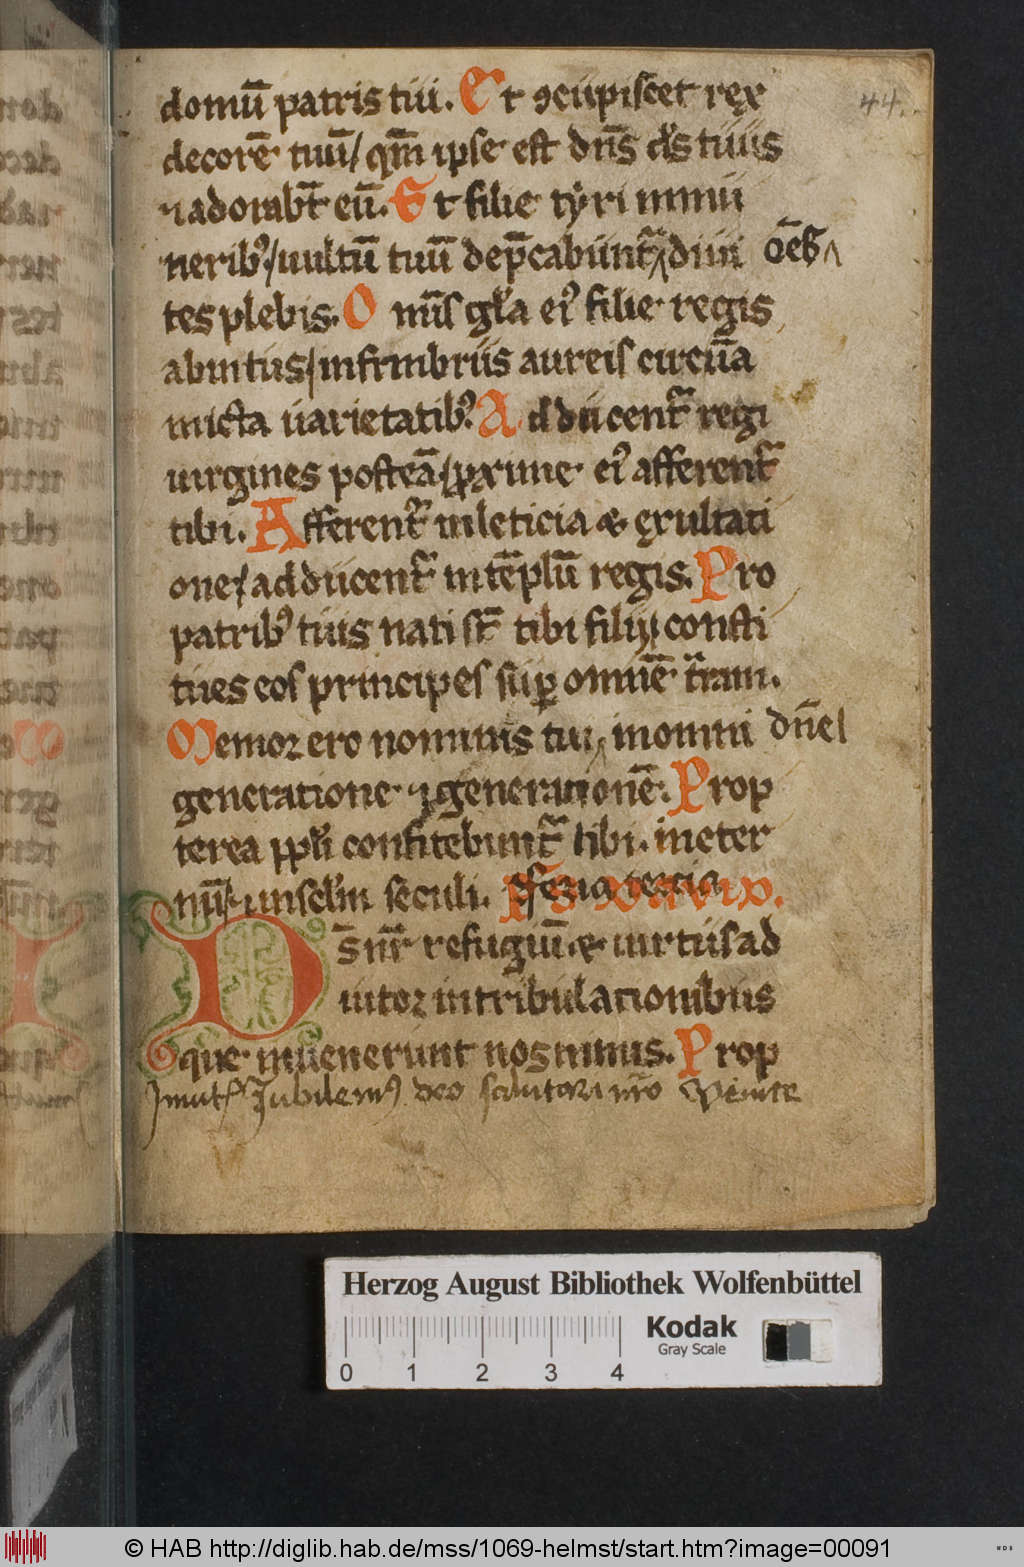 domū patris tui. Et ꝯcupiscet rex
decorē tuū / qm̄ ipse est dn̄s ds̄ tuus
⁊ adorabt̄ eū. Et filie tyri in mu
neribꝰ / uultū tuū dep̄cabunt᷑ diui oēs
tes plebis. Omīs gl̄a eiꝰ filie regis
ab intus / in fimbriis aureis circūa
micta uarietatibꝰ. Adducent᷑ regi
uirgines posteā / ꝓxime eiꝰ afferent᷑
tibi. Afferent᷑ in leticia & exultati
one / adducent᷑ in tēplū regis. Pro
patribꝰ tuis nati st̄ tibi filij / consti
tues eos principes sup̱ omnē t᷑ram.
Memor ero nominis tui in omni dn̄e
generatione ⁊ generationē. Prop
terea ppl̄i confitebunt᷑ tibi. in eter
nū / ⁊ in scl̄m seculi. feria tercia
Ds̄ nr̄ refugiū & uirtus ad
iutor in tribulationibus
que inuenerunt nos nimis. Prop
Inuit Jubilemꝰ deo salutari nr̄o Venite
44.
Herzog August Bibliothek Wolfenbüttel
0 1 2 3 4
Kodak
Gray Scale
© HAB http://diglib.hab.de/mss/1069-helmst/start.htm?image=00091